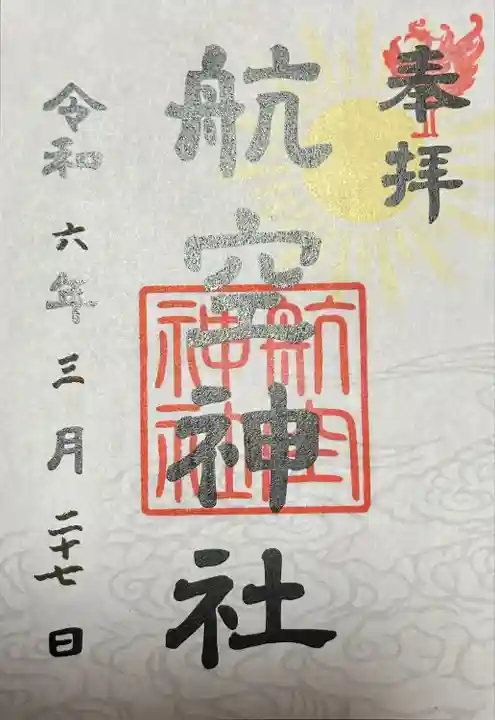 奉拝
航空神社
航空
神社
令和六年三月二十七日